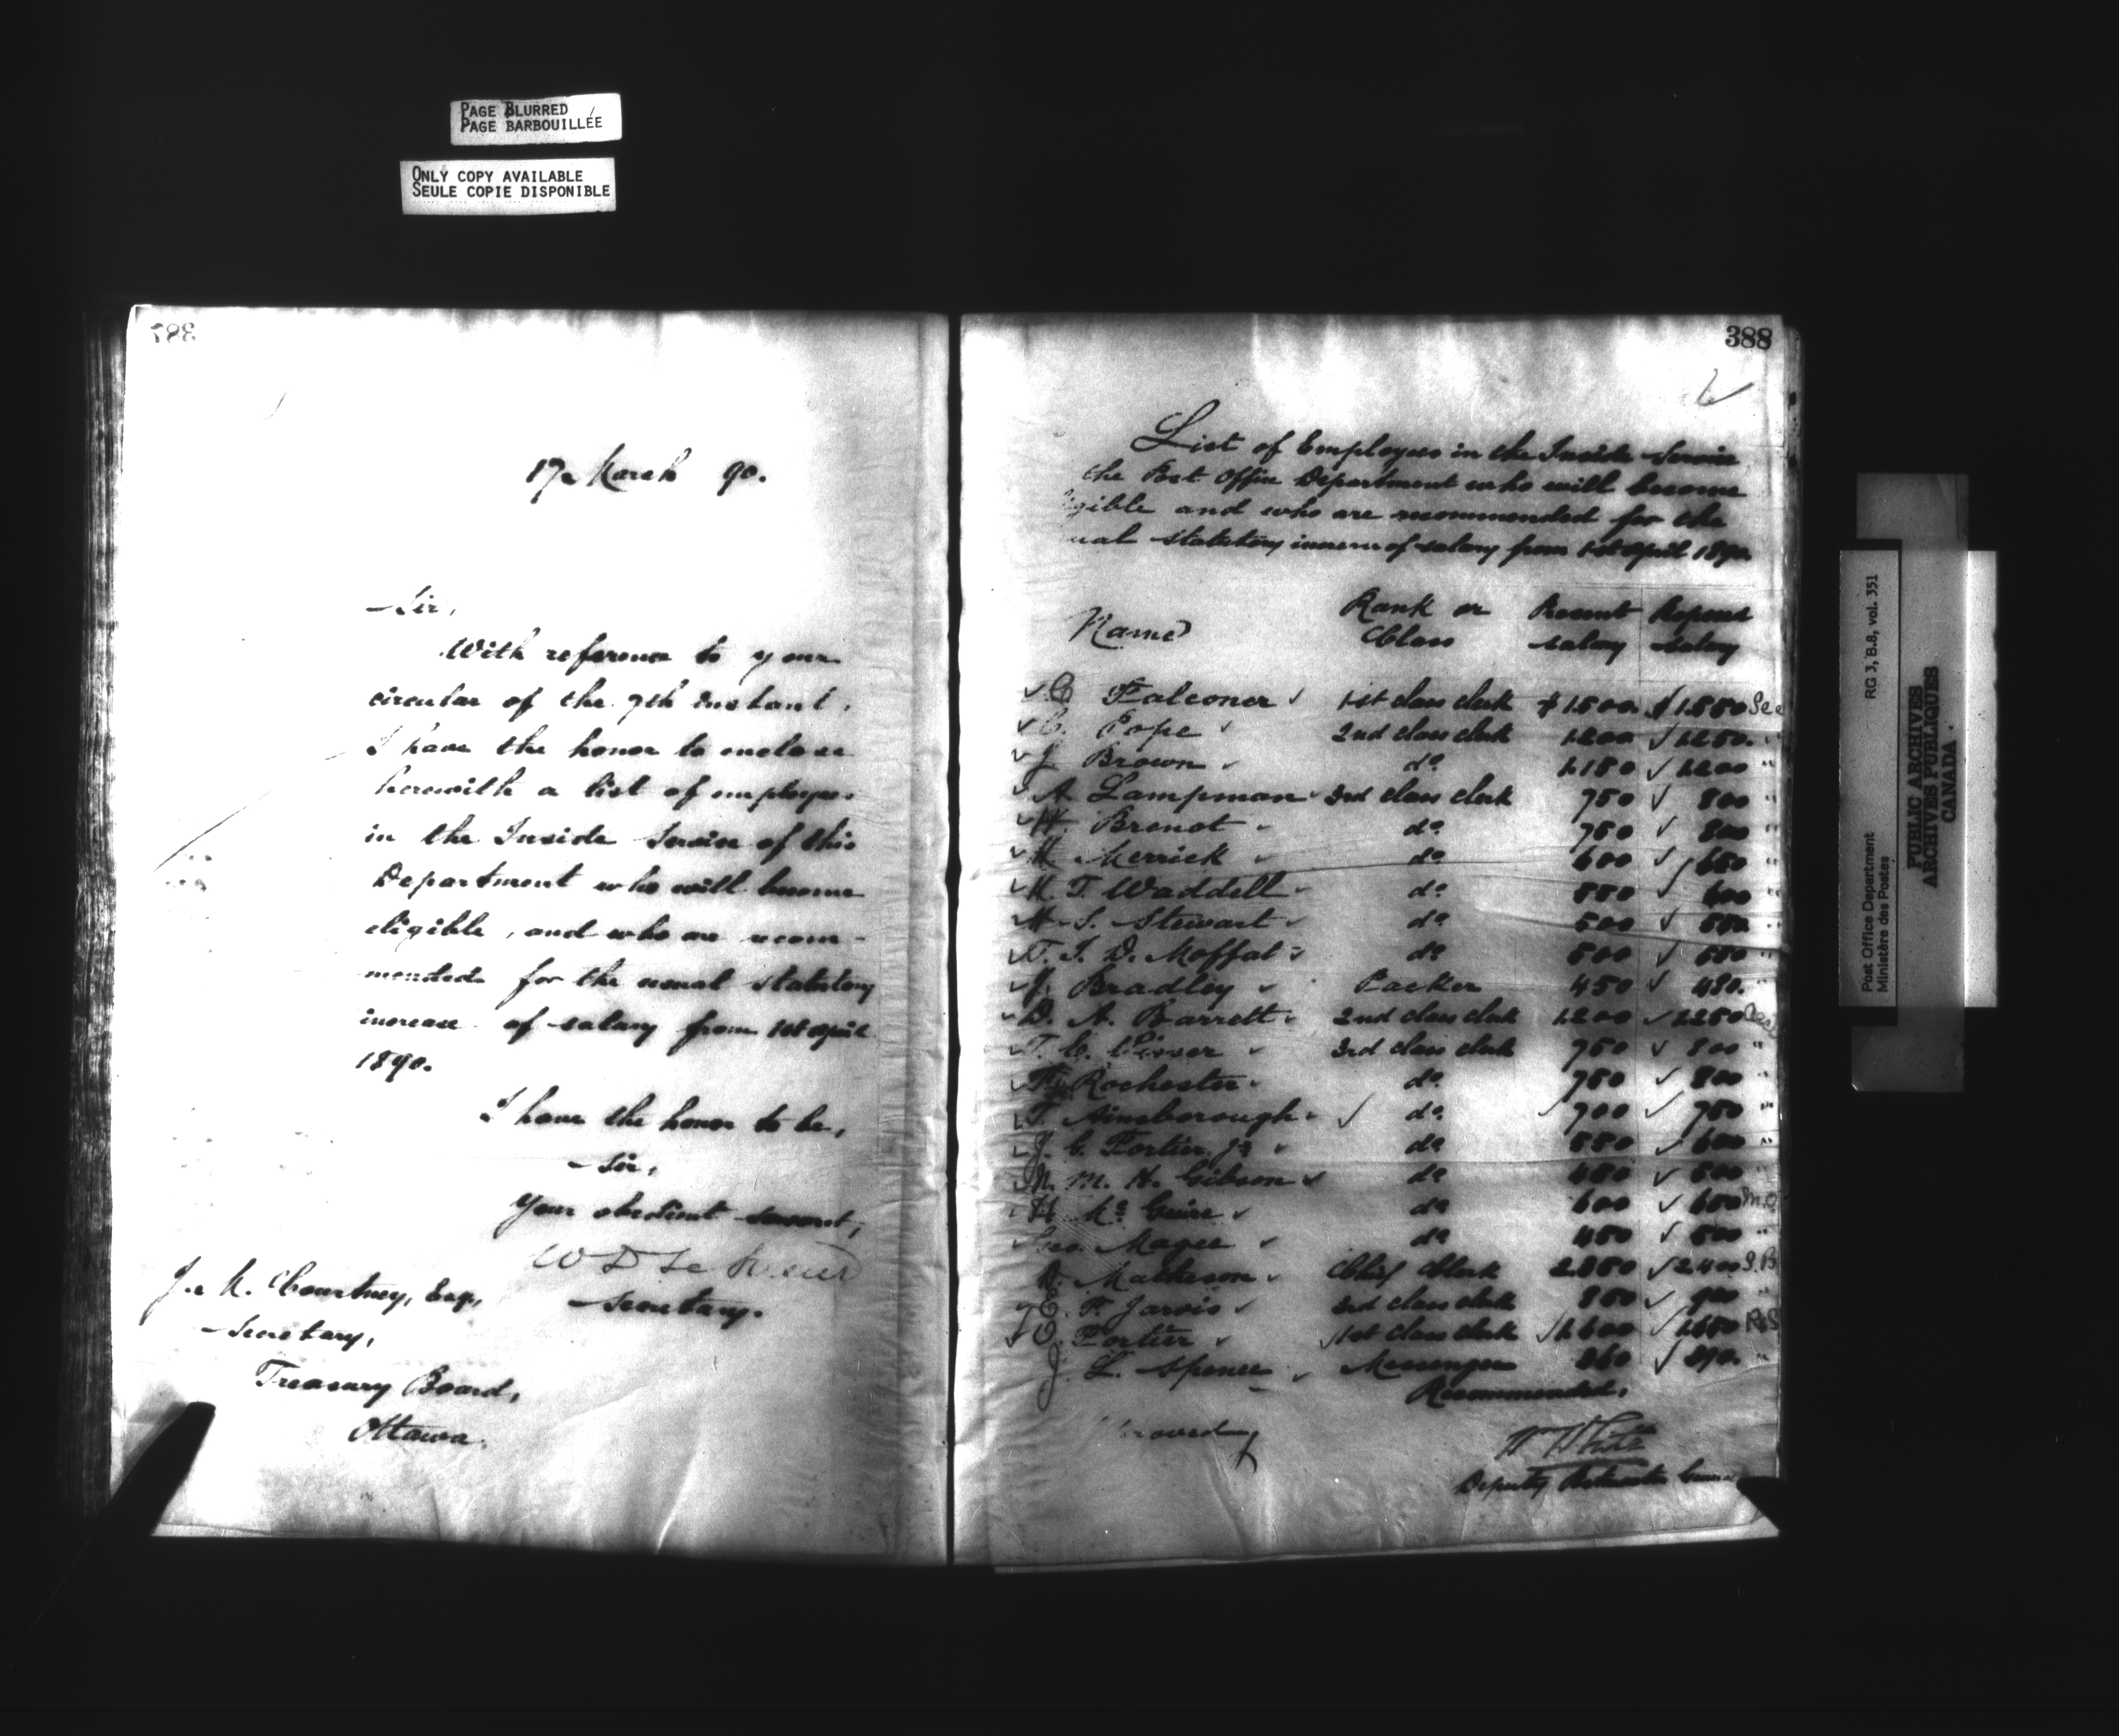 PAGE BLURRED
PAGE BARBOUILLÉE
ONLY COPY AVAILABLE
SEULE COPIE DISPONIBLE
387
17 March 90.
Sir,
With reference to your
circular of the 7th instant,
I have the honor to enclose
herewith a list of employees
in the Inside Service of this
Department who will become
eligible, and who are recom-
mended for the usual statutory
increase of salary from 1st April
1890.
I have the honor to be,
Sir,
Your obedient servant,
W D Le Sueur
Secretary.
J. M. Courtney, Esq.,
Secretary,
Treasury Board,
Ottawa.
388
List of Employees in the Inside Service
the Post Office Department who will become
gible and who are recommended for the
ual statutory increase of salary from 1st April 1890.
Name Rank or Class Present salary Proposed salary
C Falconer 1st class clerk $1500. $1550 Sec
C. Pope 2nd class clerk 1200 1250. "
J. Brown do 1150 1200 "
A. Lampman 3rd class clerk 750 800 "
H. Benoit do 750 800 "
H. Merrick do 600 650 "
M. T. Waddell do 550 600 "
M. S. Stewart do 500 550 "
T. J. D. Moffat do 500 550 "
J. Bradley Packer 450 480. "
D. A. Barrett 2nd class clerk 1200 1250
T. C. 3rd class clerk 750 800 "
Rochester do 750 800 "
T. Ainsborough do 700 750 "
J. C. Fortier Jr do 550 600 "
M. M. H. Gibson do 450 500 "
H McGuire do 600 650 M.O
Geo. Magee do 450 500 "
D. Matheson Chief Clerk 2350 2400 S.B
E. F. Jarvis 3rd class clerk 850 900 "
Fortier 1st class clerk 1600 1650
J. L. Spence Messenger 360 390. "
Recommended,
W White
Deputy Postmaster General
Post Office Department RG 3, B.8, vol. 351
Ministère des Postes
PUBLIC ARCHIVES
ARCHIVES PUBLIQUES
CANADA